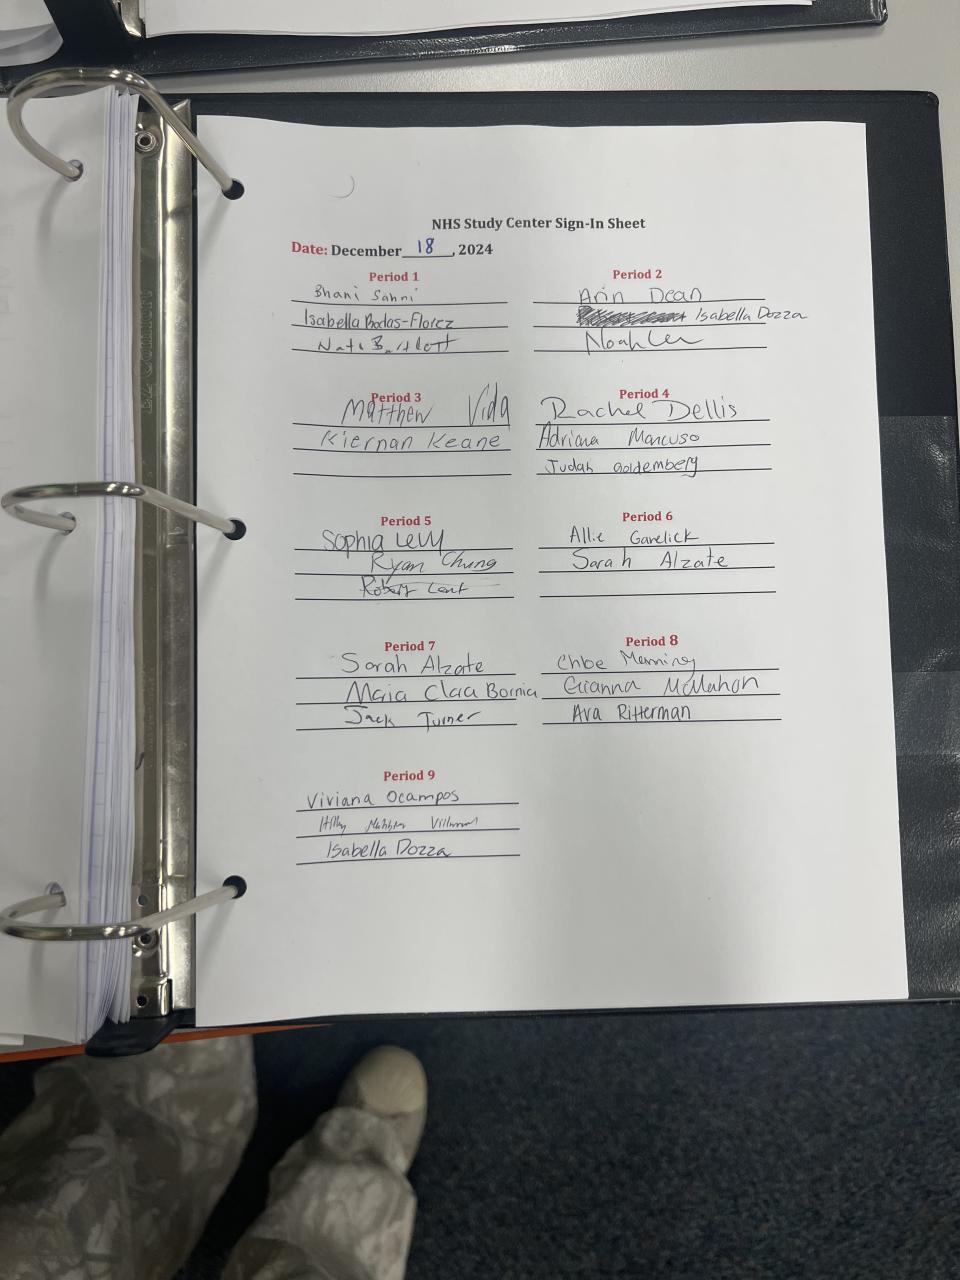 NHS Study Center Sign-In Sheet
Date: December 18, 2024
Period 1
Bhani Sahni
Isabella Rodas-Florez
Nate Bartlett
Period 2
Arin Dean
Isabella Dozza
Noah
Period 3
Matthew Vida
Kiernan Keane
Period 4
Rachel Dellis
Adriana Mancuso
Judah Goldemberg
Period 5
Sophia Levy
Ryan Chung
Robert
Period 6
Allie Garelick
Sarah Alzate
Period 7
Sarah Alzate
Maria Clara Bornia
Jack Turner
Period 8
Chloe Manning
Gianna McMahon
Ava Ritterman
Period 9
Viviana Ocampos
Isabella Dozza